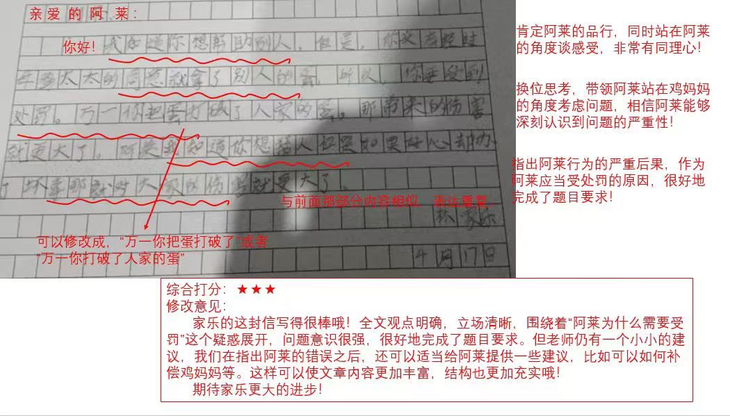 亲爱的阿莱：
你好！我知道你想帮助别人，但是，你没有经过
太太的同意就拿了别人的蛋，所以，你要受到
处罚。万一你把蛋打破了人家的蛋。那带来的伤害
就更大了，阿莱我知道你想给人
了坏事那就对大家的伤害就更大了。
与前面部分内容相似，表达重复
4月17日
可以修改成，“万一你把蛋打破了”或者
“万一你打破了人家的蛋”
肯定阿莱的品行，同时站在阿莱
的角度谈感受，非常有同理心！
换位思考，带领阿莱站在鸡妈妈
的角度考虑问题，相信阿莱能够
深刻认识到问题的严重性！
指出阿莱行为的严重后果，作为
阿莱应当受处罚的原因，很好地
完成了题目要求！
综合打分：★★★
修改意见：
家乐的这封信写得很棒哦！全文观点明确，立场清晰，围绕着“阿莱为什么需要受
罚”这个疑惑展开，问题意识很强，很好地完成了题目要求。但老师仍有一个小小的建
议，我们在指出阿莱的错误之后，还可以适当给阿莱提供一些建议，比如可以如何补
偿鸡妈妈等。这样可以使文章内容更加丰富，结构也更加充实哦！
期待家乐更大的进步！